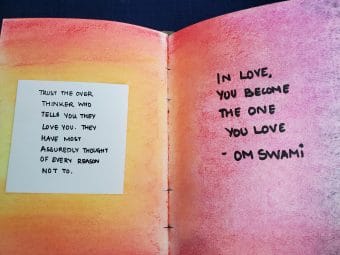 TRUST THE OVER
THINKER WHO
TELLS YOU THEY
LOVE YOU. THEY
HAVE MOST
ASSUREDLY THOUGHT
OF EVERY REASON
NOT TO.
IN LOVE,
YOU BECOME
THE ONE
YOU LOVE
- OM SWAMi